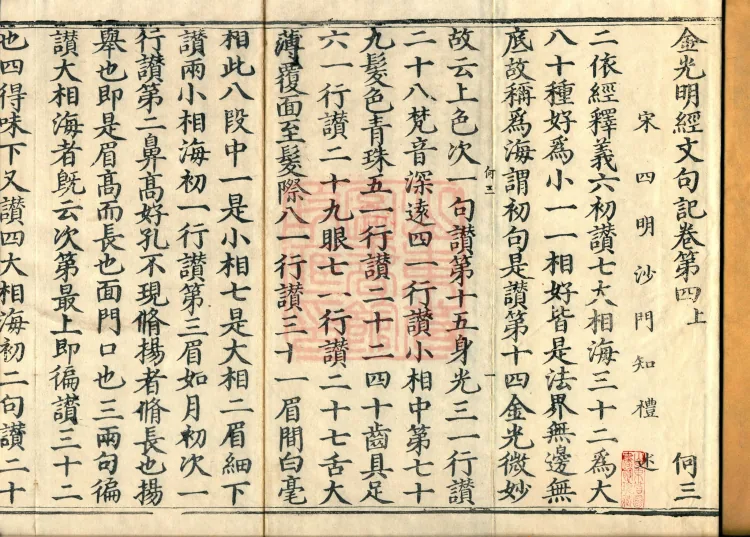 金光明經文句記卷第四上 何三
宋四明沙門知禮述
二依經釋義六初讃七大相海三十二爲大
八十種好爲小一一相好皆是法界無邊無
底故稱爲海謂初句是讃第十四金光微妙
何三 一
故云上色次一句讃第十五身光三一行讃
二十八梵音深遠四一行讃小相中第七十
九髮色青珠五一行讃二十二四十齒具足
六一行讃二十九眼七一行讃二十七舌大
薄覆面至髮際八一行讃三十一眉間白毫
相此八段中一是小相七是大相二眉細下
讃兩小相海初一行讃第三眉如月初次一
行讃第二鼻高好孔不現脩揚者脩長也揚
舉也即是眉高而長也面門口也三兩句徧
讃大相海者旣云次第最上即徧讃三十二
也四得味下又讃四大相海初二句讃二十